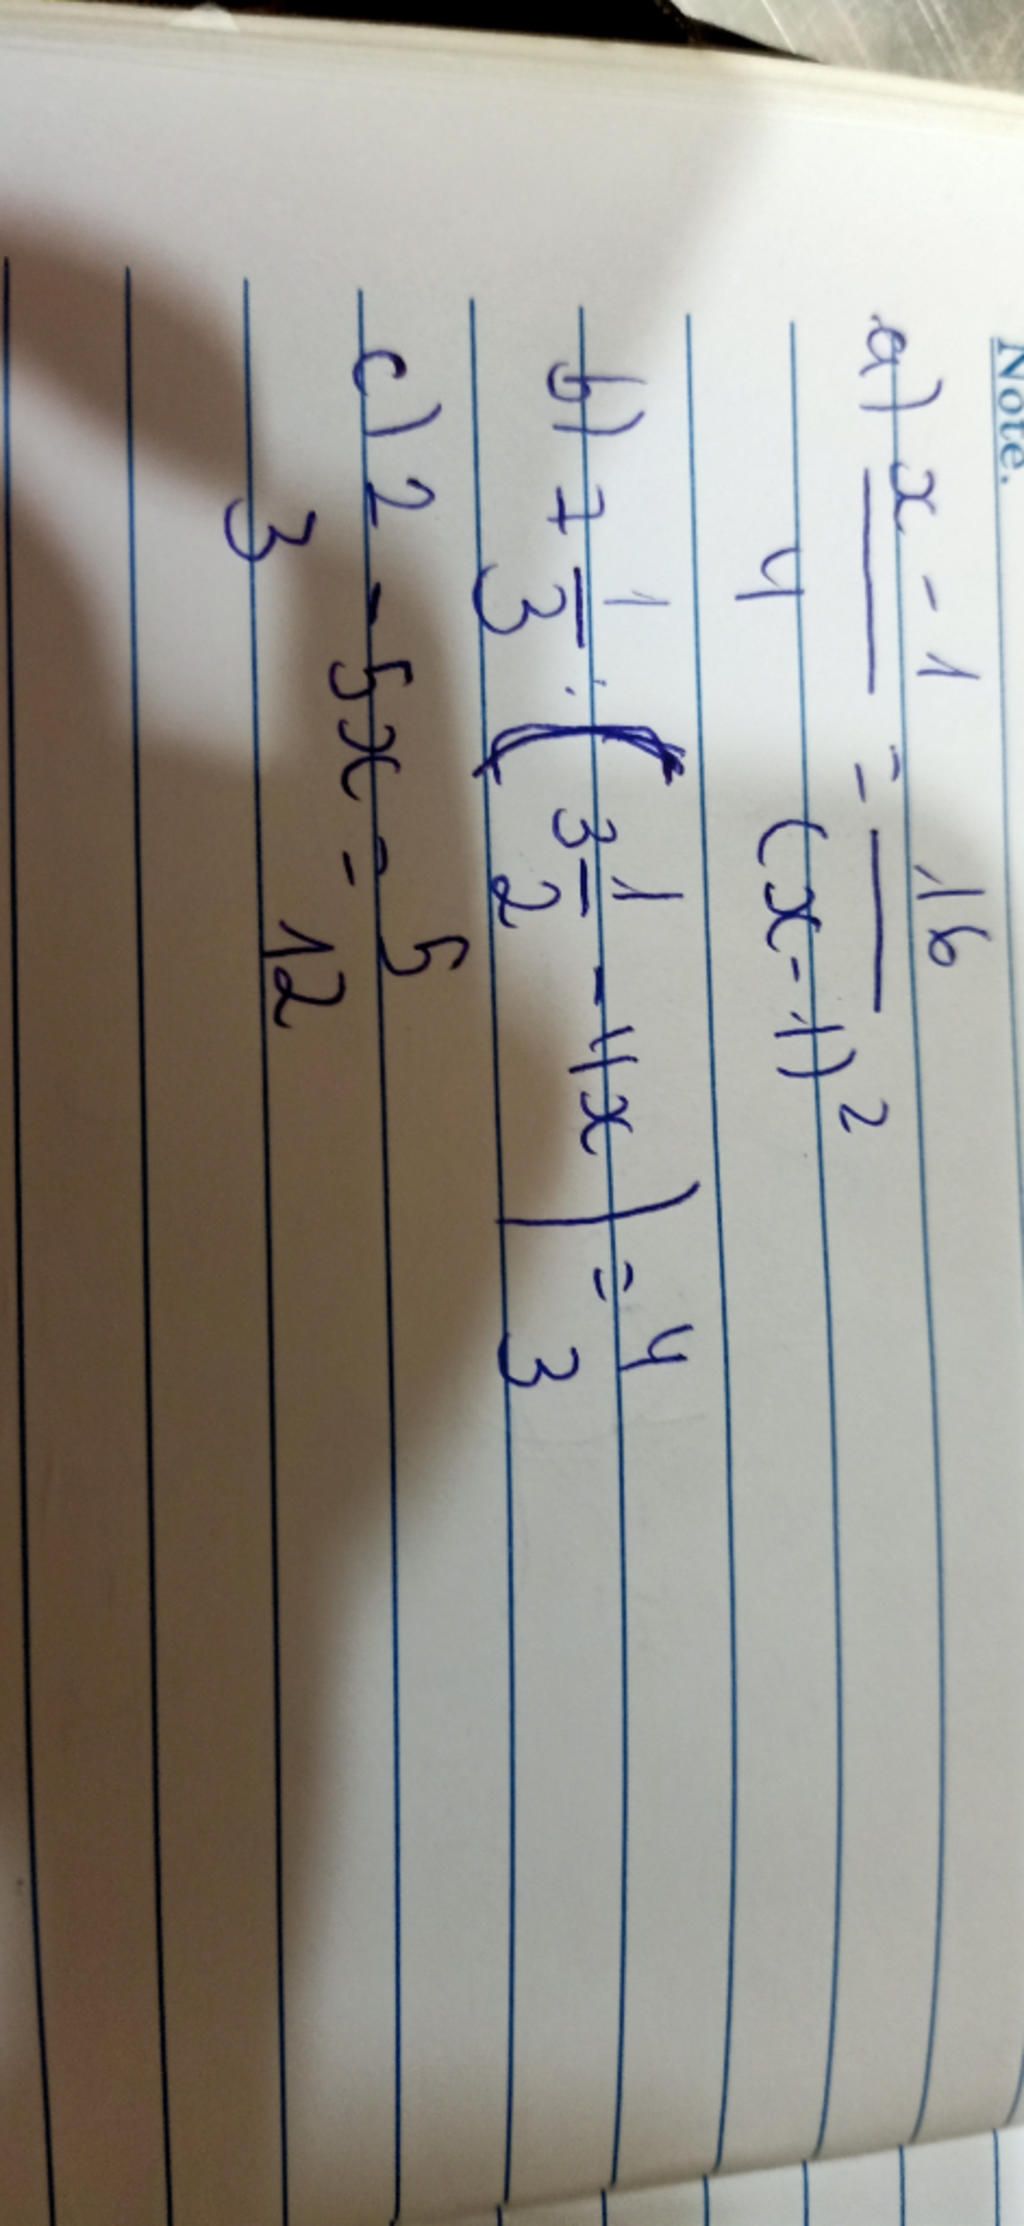 Note.
a) x - 1 = 16
4 (x - 1)²
b) 7 1/3 : ( 3 1/2 - 4x ) = 4/3
c) 2/3 - 5x = 5/12